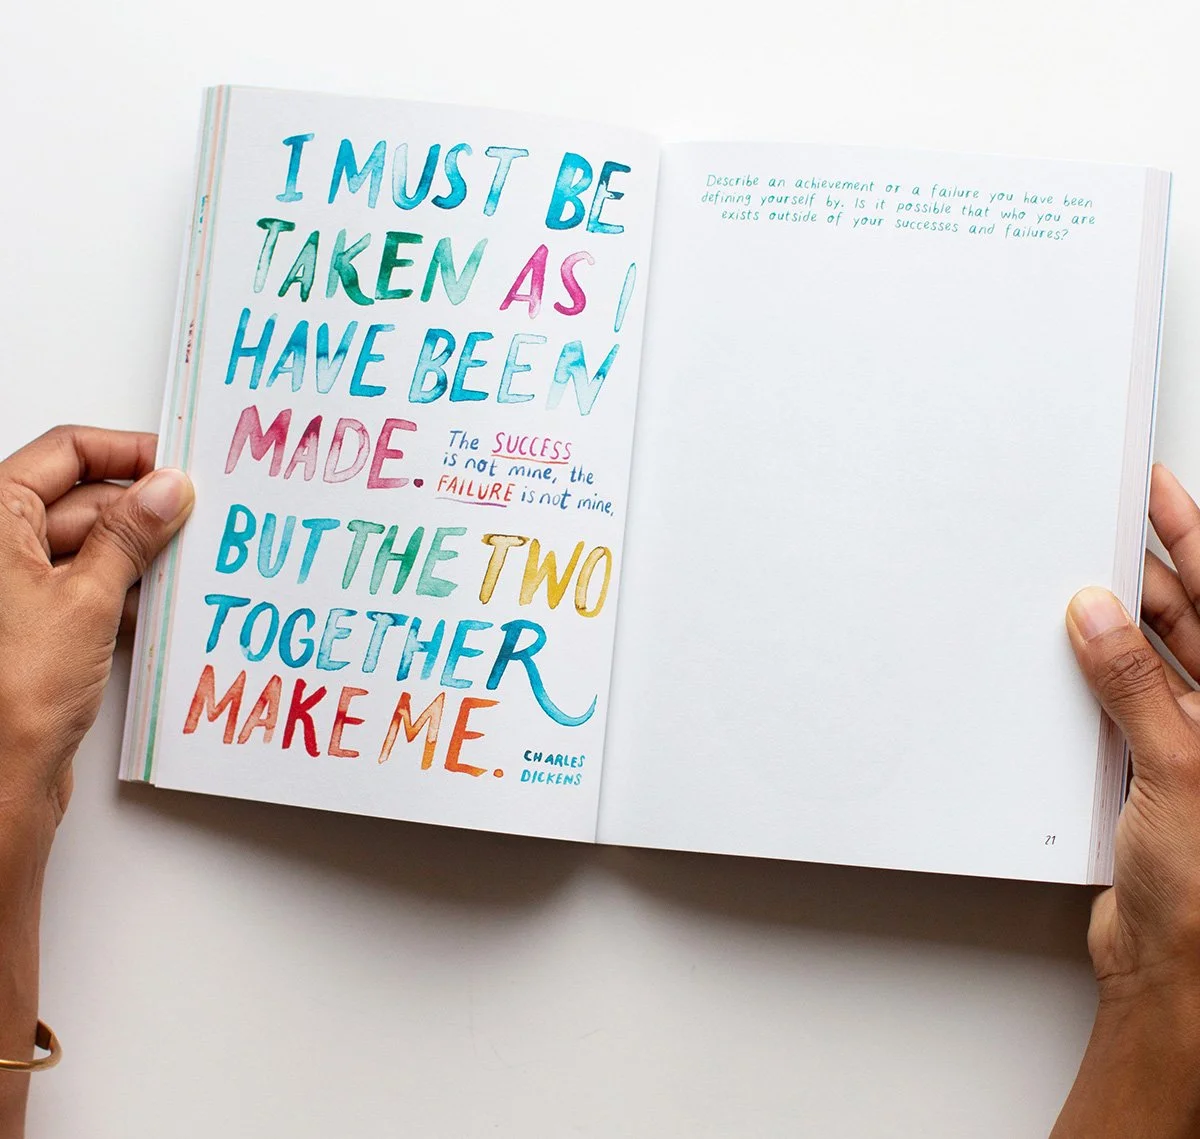 I MUST BE
TAKEN AS I
HAVE BEEN
MADE.
The SUCCESS
is not mine, the
FAILURE is not mine,
BUT THE TWO
TOGETHER
MAKE ME.
CHARLES
DICKENS
Describe an achievement or a failure you have been
defining yourself by. Is it possible that who you are
exists outside of your successes and failures?
21